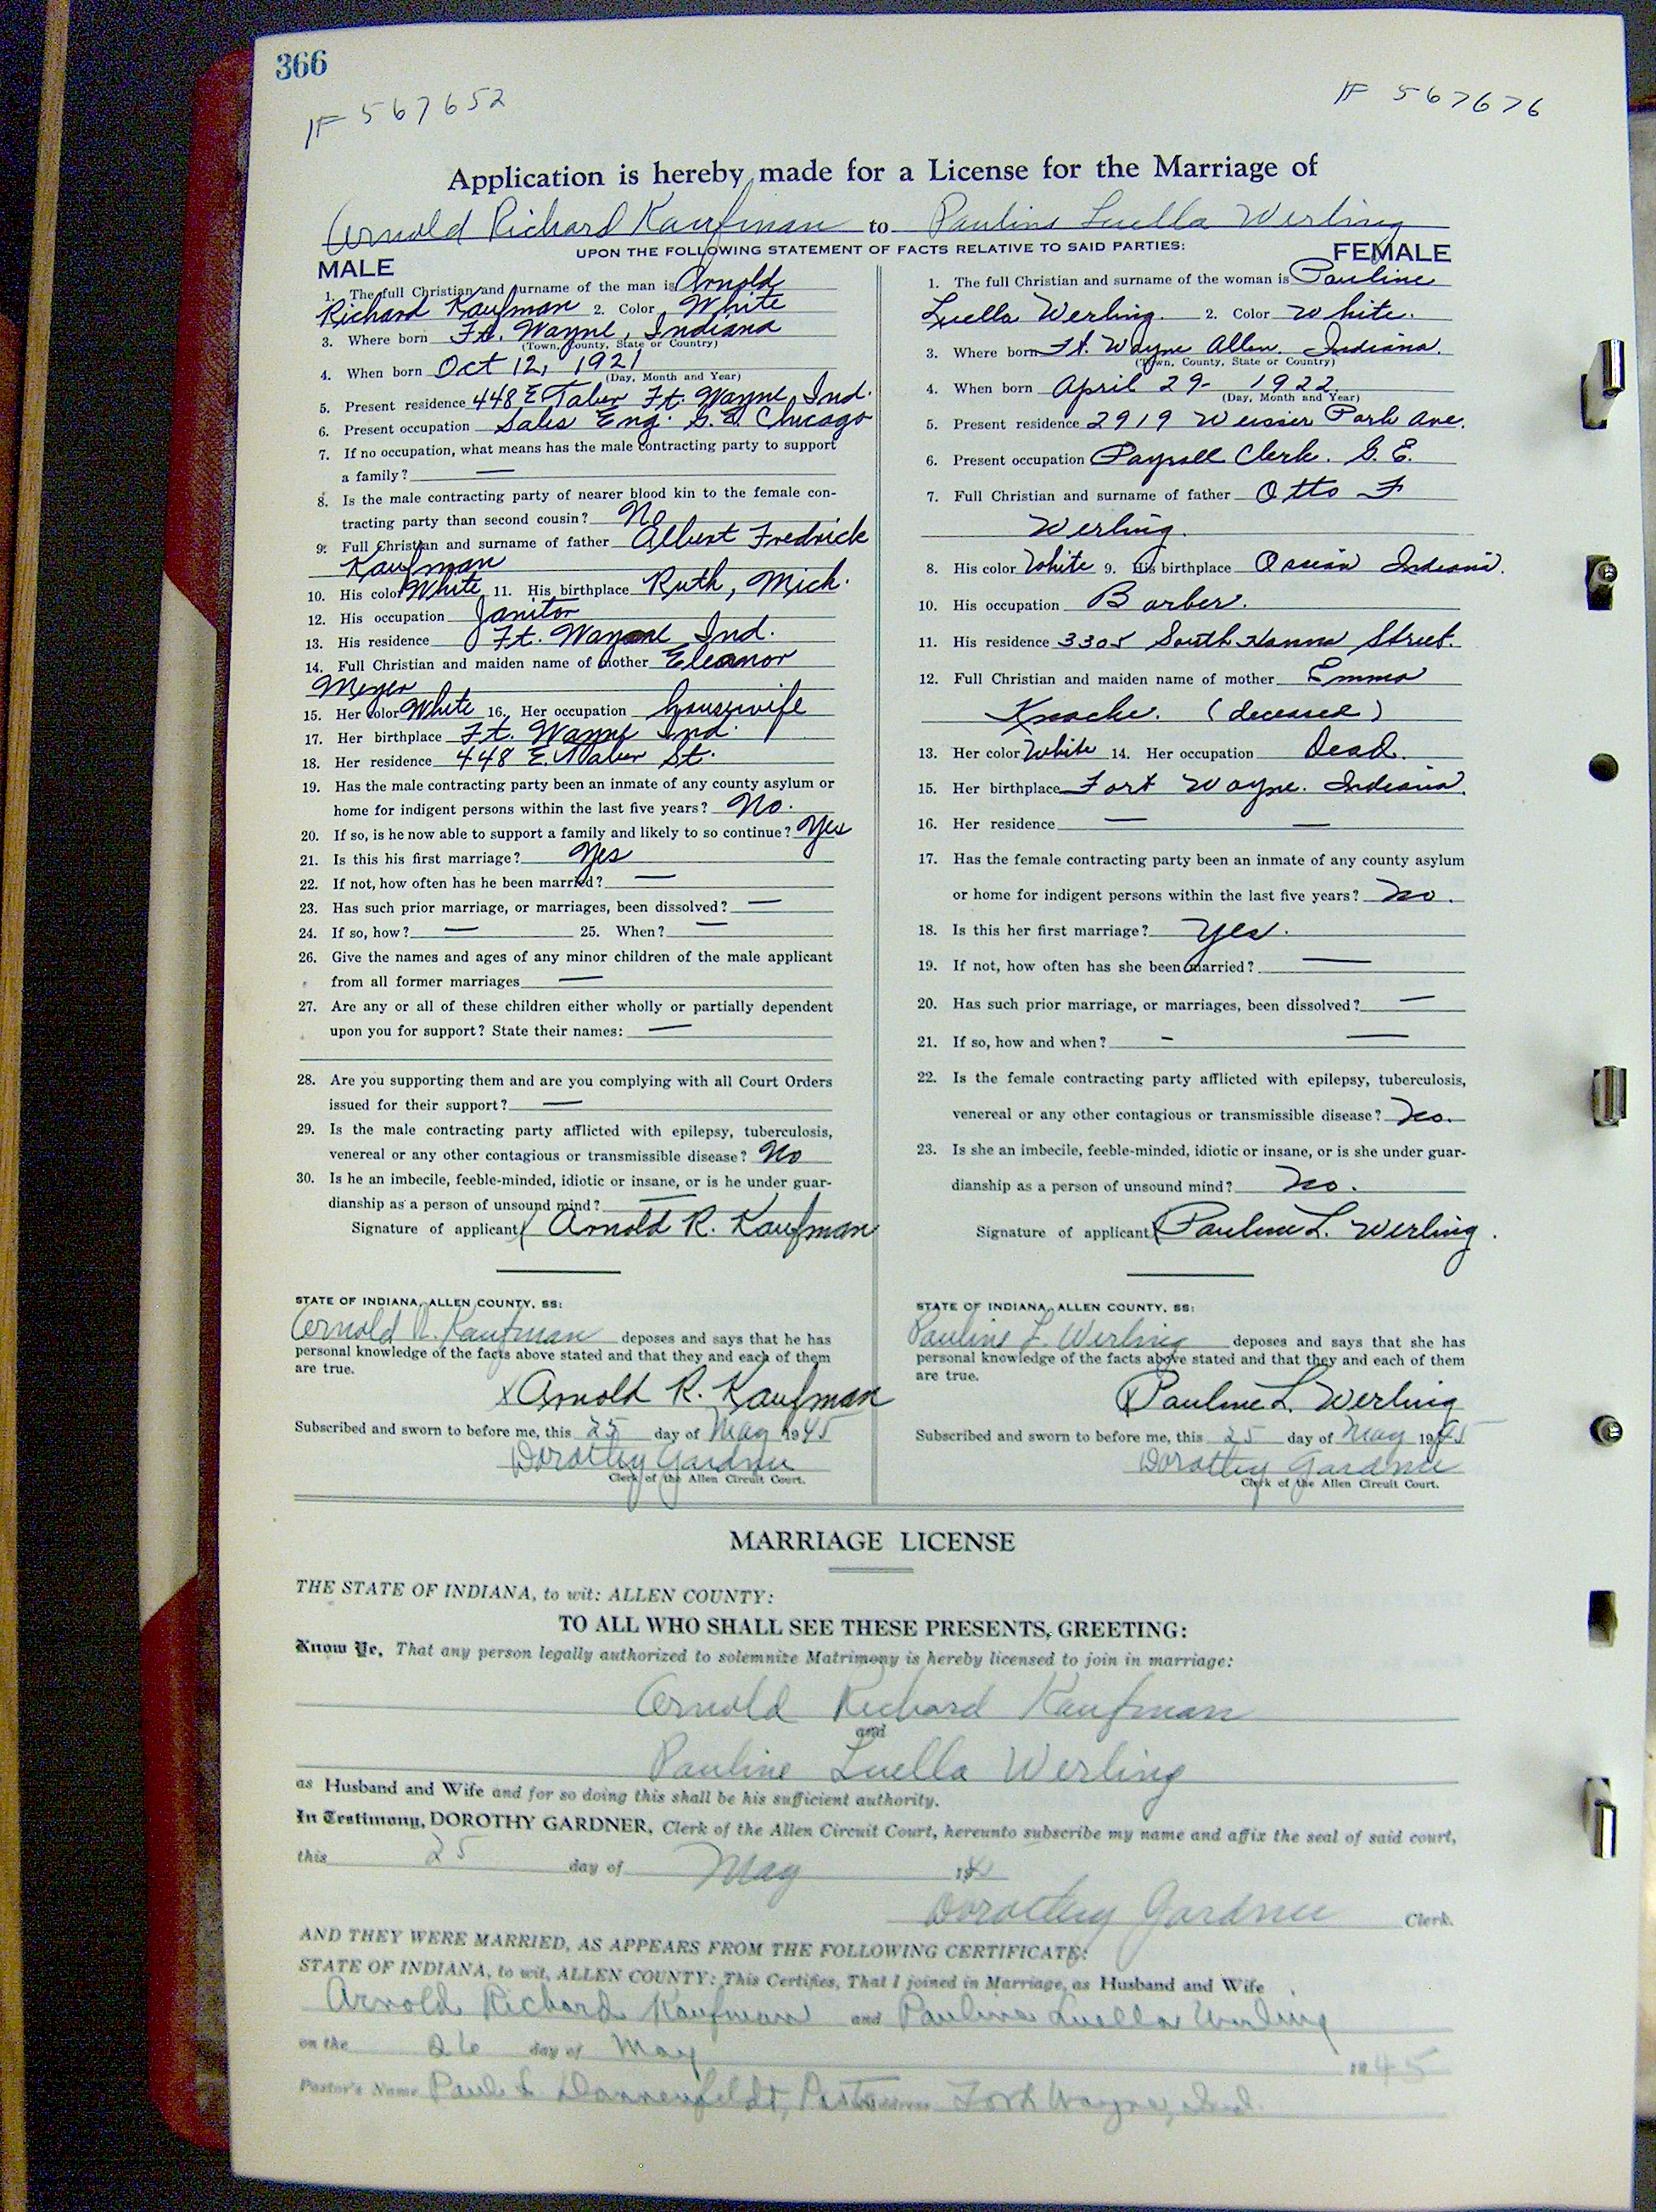 366
IF 567652
IF 567676
Application is hereby made for a License for the Marriage of
Arnold Richard Kaufman to Pauline Luella Werling
UPON THE FOLLOWING STATEMENT OF FACTS RELATIVE TO SAID PARTIES:
MALE
1. The full Christian and surname of the man is Arnold
Richard Kaufman 2. Color White
3. Where born Ft. Wayne, Indiana
(Town, County, State or Country)
4. When born Oct 12, 1921
(Day, Month and Year)
5. Present residence 448 E Taber Ft. Wayne, Ind.
6. Present occupation Sales Eng. G.E. Chicago
7. If no occupation, what means has the male contracting party to support
a family? —
8. Is the male contracting party of nearer blood kin to the female con-
tracting party than second cousin? No
9. Full Christian and surname of father Albert Fredrick
Kaufman
10. His color White 11. His birthplace Ruth, Mich.
12. His occupation Janitor
13. His residence Ft. Wayne Ind.
14. Full Christian and maiden name of mother Eleanor
Meyer
15. Her color White 16. Her occupation housewife
17. Her birthplace Ft. Wayne Ind.
18. Her residence 448 E. Taber St.
19. Has the male contracting party been an inmate of any county asylum or
home for indigent persons within the last five years? No.
20. If so, is he now able to support a family and likely to so continue? Yes
21. Is this his first marriage? Yes
22. If not, how often has he been married? —
23. Has such prior marriage, or marriages, been dissolved? —
24. If so, how? — 25. When? —
26. Give the names and ages of any minor children of the male applicant
from all former marriages —
27. Are any or all of these children either wholly or partially dependent
upon you for support? State their names: —
28. Are you supporting them and are you complying with all Court Orders
issued for their support? —
29. Is the male contracting party afflicted with epilepsy, tuberculosis,
venereal or any other contagious or transmissible disease? No
30. Is he an imbecile, feeble-minded, idiotic or insane, or is he under guar-
dianship as a person of unsound mind? —
Signature of applicant Arnold R. Kaufman
STATE OF INDIANA, ALLEN COUNTY, SS:
Arnold R. Kaufman deposes and says that he has
personal knowledge of the facts above stated and that they and each of them
are true.
x Arnold R. Kaufman
Subscribed and sworn to before me, this 25 day of May 1945
Dorothy Gardner
Clerk of the Allen Circuit Court.
FEMALE
1. The full Christian and surname of the woman is Pauline
Luella Werling. 2. Color White.
3. Where born Ft. Wayne Allen. Indiana.
(Town, County, State or Country)
4. When born April 29- 1922
(Day, Month and Year)
5. Present residence 2919 Weisser Park Ave.
6. Present occupation Payroll Clerk. G.E.
7. Full Christian and surname of father Otto F
Werling.
8. His color White 9. His birthplace Ossian Indiana.
10. His occupation Barber.
11. His residence 3305 South Hanna Street.
12. Full Christian and maiden name of mother Emma
Knoche. (deceased)
13. Her color White 14. Her occupation Dead.
15. Her birthplace Fort Wayne. Indiana.
16. Her residence — —
17. Has the female contracting party been an inmate of any county asylum
or home for indigent persons within the last five years? No.
18. Is this her first marriage? Yes.
19. If not, how often has she been married? —
20. Has such prior marriage, or marriages, been dissolved? —
21. If so, how and when? - —
22. Is the female contracting party afflicted with epilepsy, tuberculosis,
venereal or any other contagious or transmissible disease? No.
23. Is she an imbecile, feeble-minded, idiotic or insane, or is she under guar-
dianship as a person of unsound mind? No.
Signature of applicant Pauline L. Werling.
STATE OF INDIANA, ALLEN COUNTY, SS:
Pauline L. Werling deposes and says that she has
personal knowledge of the facts above stated and that they and each of them
are true.
x Pauline L. Werling
Subscribed and sworn to before me, this 25 day of May 1945
Dorothy Gardner
Clerk of the Allen Circuit Court.
MARRIAGE LICENSE
THE STATE OF INDIANA, to wit: ALLEN COUNTY:
TO ALL WHO SHALL SEE THESE PRESENTS, GREETING:
Know Ye, That any person legally authorized to solemnize Matrimony is hereby licensed to join in marriage:
Arnold Richard Kaufman
and
Pauline Luella Werling
as Husband and Wife and for so doing this shall be his sufficient authority.
In Testimony, DOROTHY GARDNER, Clerk of the Allen Circuit Court, hereunto subscribe my name and affix the seal of said court,
this 25 day of May
Dorothy Gardner Clerk.
AND THEY WERE MARRIED, AS APPEARS FROM THE FOLLOWING CERTIFICATE:
STATE OF INDIANA, to wit, ALLEN COUNTY: This Certifies, That I joined in Marriage, as Husband and Wife
Arnold Richard Kaufman and Pauline Luella Werling
on the 26 day of May 1945
Pastor's Name Paul L. Dannenfeldt, Pastor Address Fort Wayne, Ind.